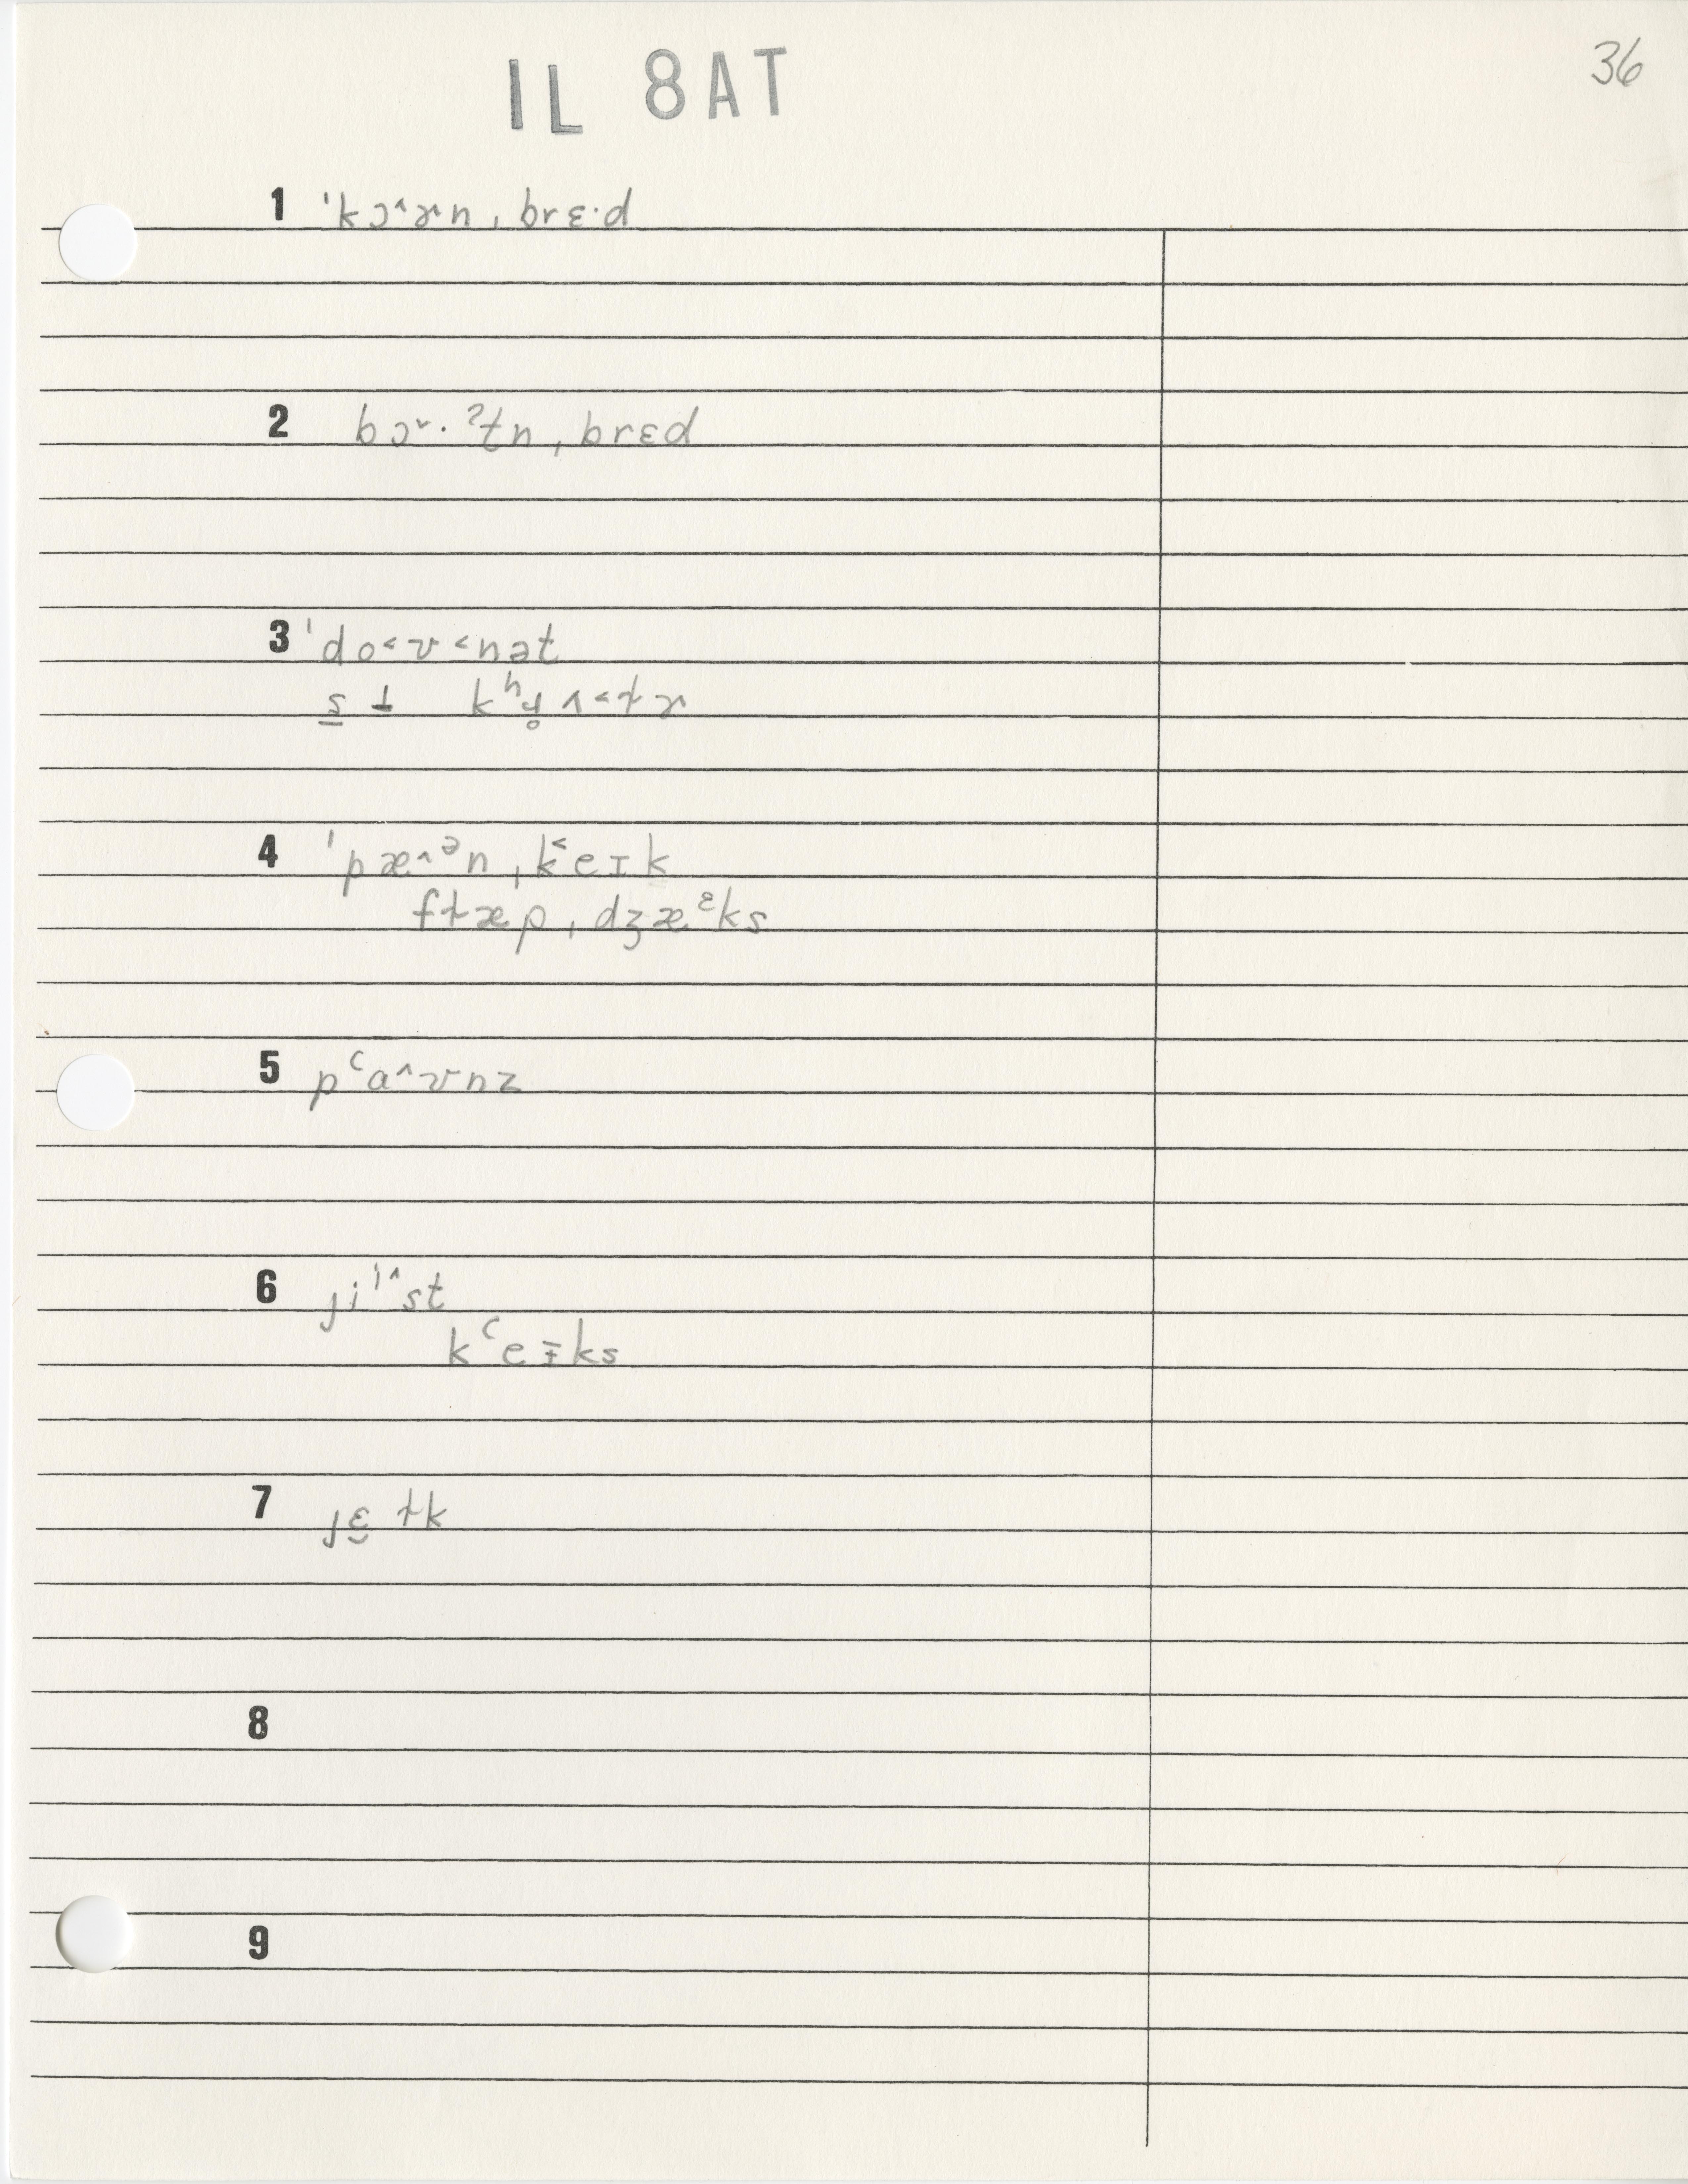 IL 8AT
36
1 ˈkɔ^ɚn ˌbrɛ·d
2 bɔ˅·ʔtn ˌbrɛd
3 ˈdo˂ʊ˂nət
4 ˈpæ^ᵊn ˌk˂eɪk
fɫæp ˌdʒæᵋks
5 pʿa^ʊnz
6 jiⁱ^st
kʿeɪ̵ks
7 jɛ̮ ɫk
8
9